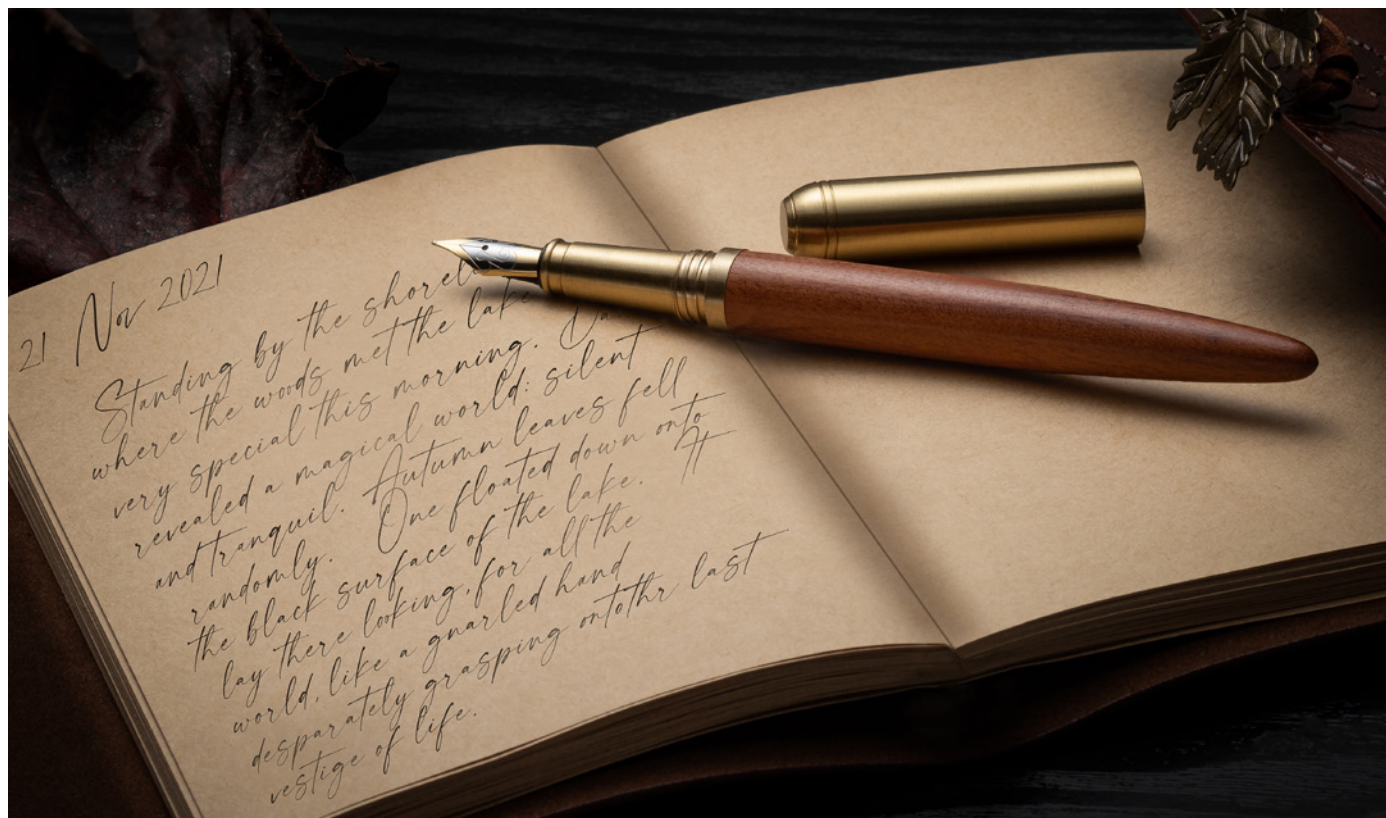 21 Nov 2021
Standing by the
where the woods met the lake
very special this morning.
revealed a magical world: silent
and tranquil. Autumn leaves fell
randomly. One floated down onto
the black surface of the lake. It
lay there looking, for all the
world, like a gnarled hand
desparately grasping ontothr last
vestige of life.